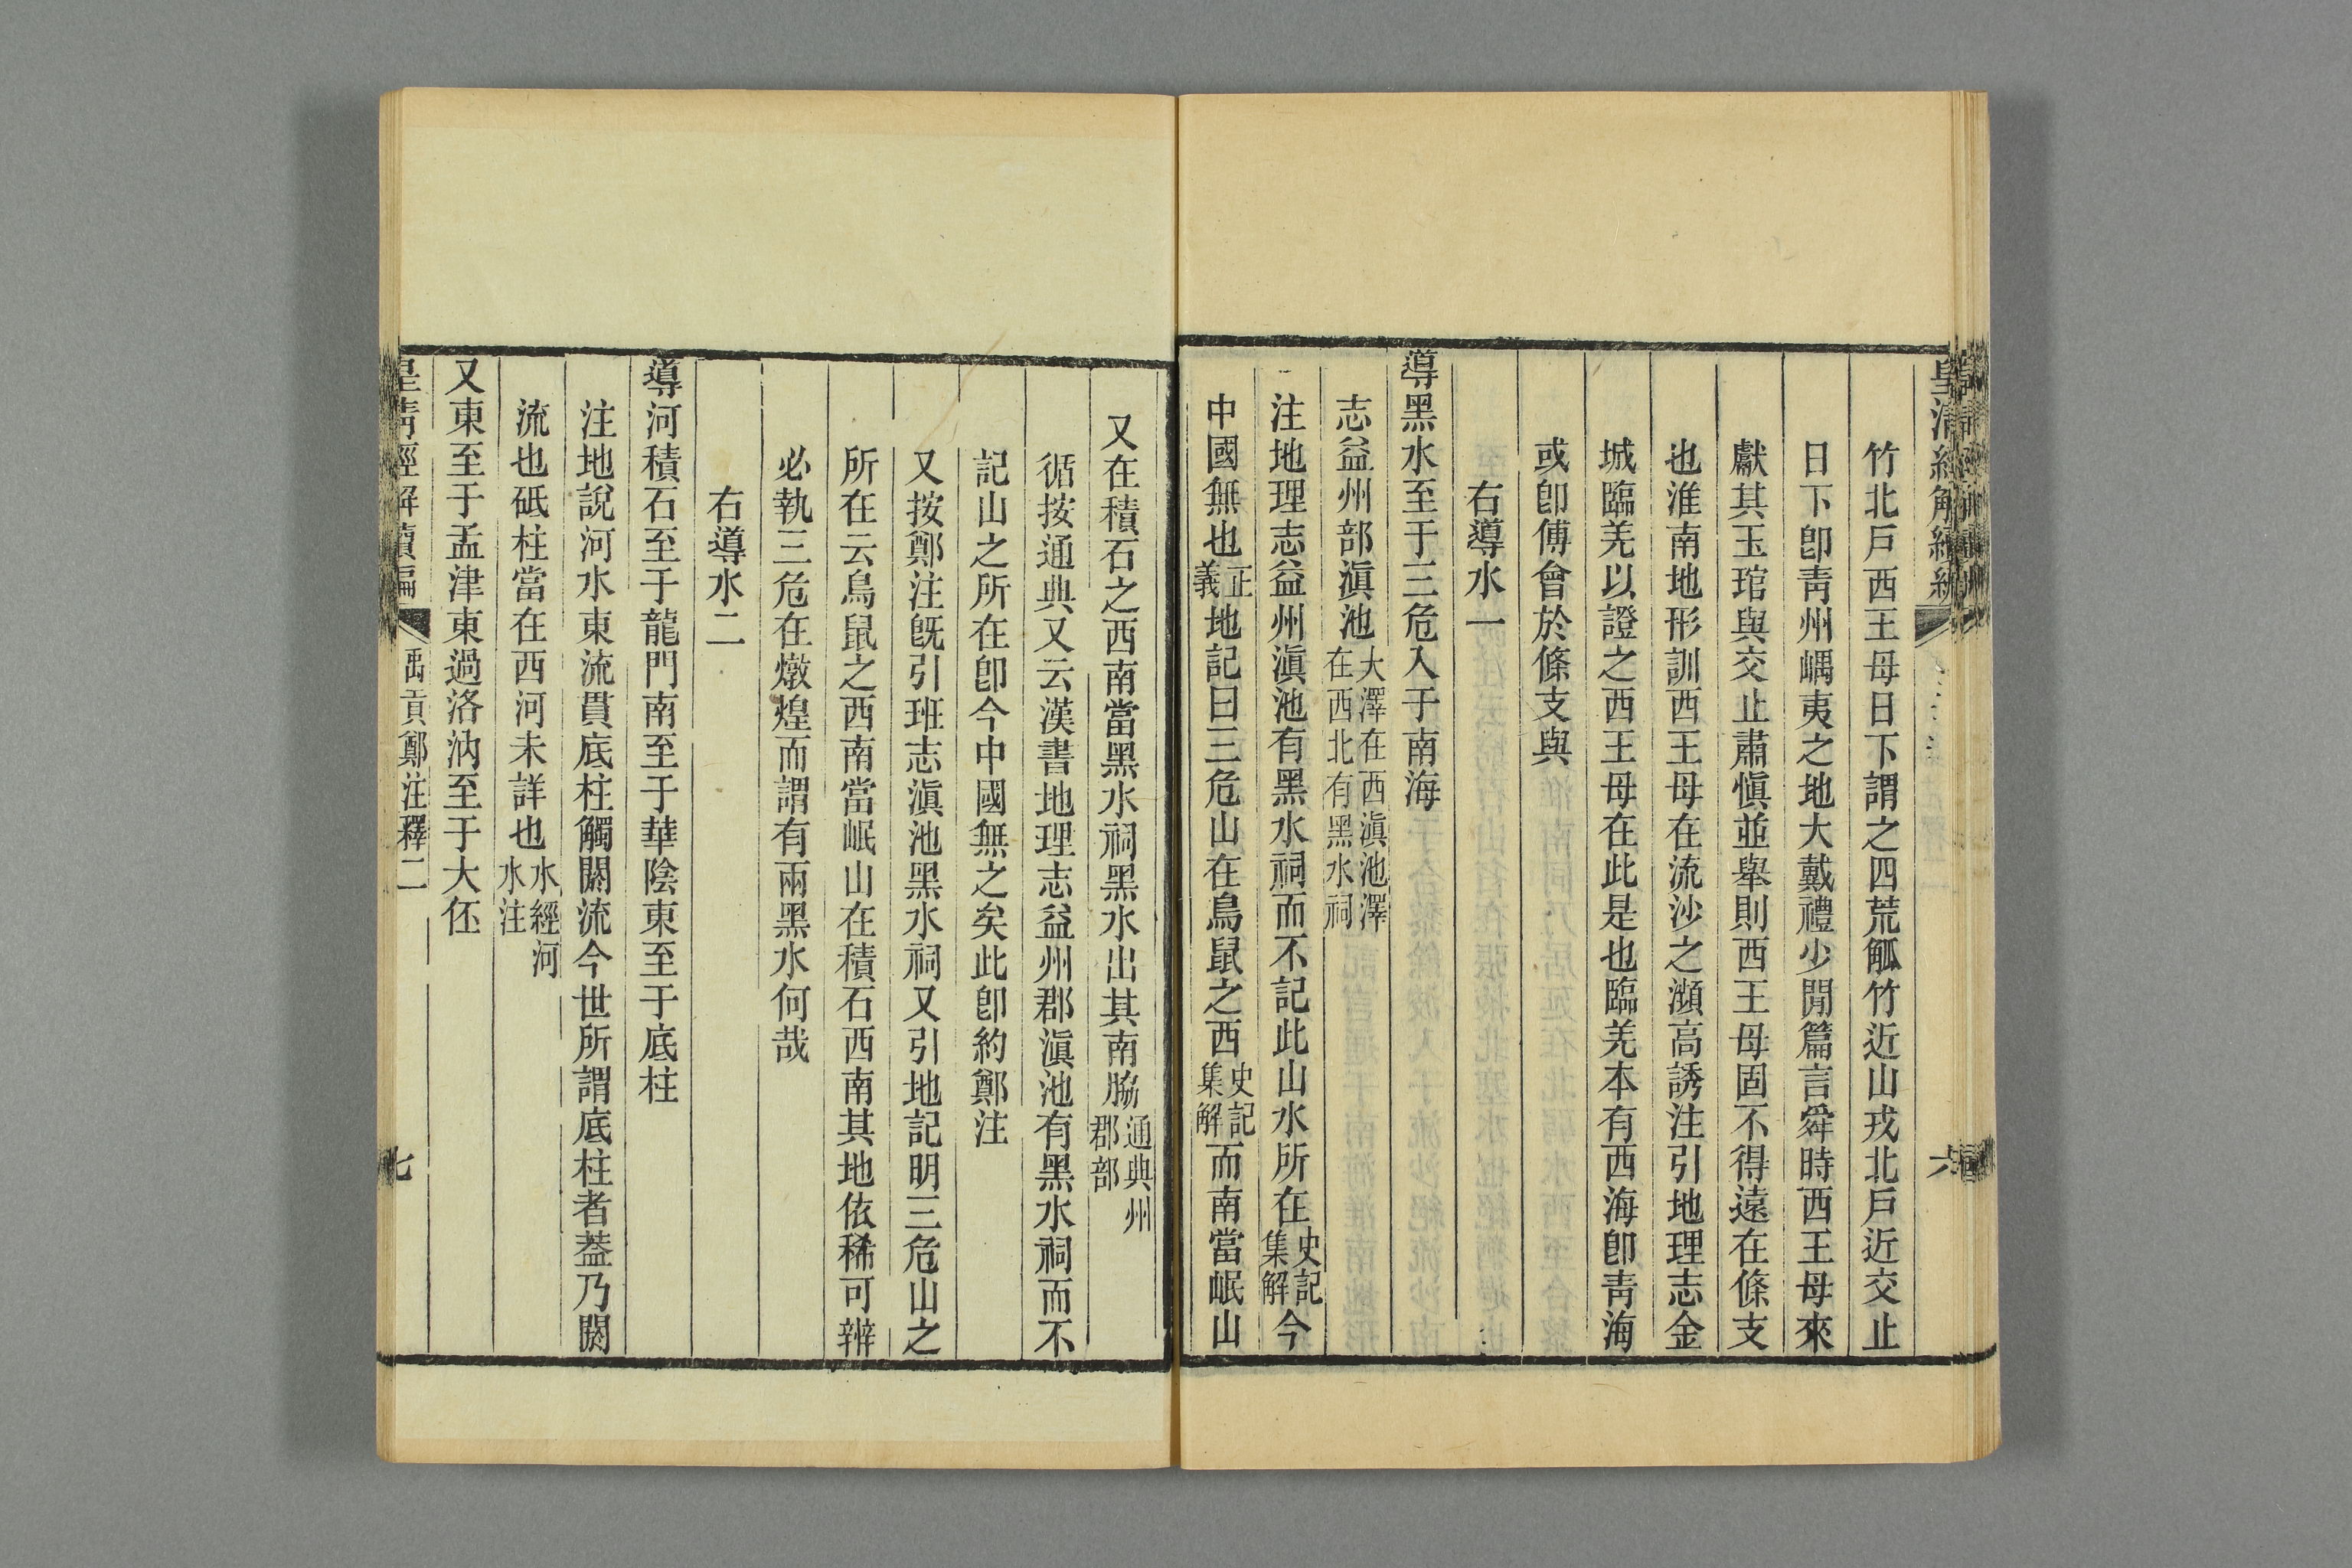 竹北戶西王母日下謂之四荒觚竹近山戎北戶近交止
日下卽靑州嵎夷之地大戴禮少閒篇言舜時西王母來
獻其玉琯與交止肅愼並舉則西王母固不得遠在條支
也淮南地形訓西王母在流沙之瀕高誘注引地理志金
城臨羌以證之西王母在此是也臨羌本有西海卽靑海
或卽傅會於條支與
右導水一
導黑水至于三危入于南海
志益州部滇池大澤在西滇池澤在西北有黑水祠
注地理志益州滇池有黑水祠而不記此山水所在史記集解今
中國無也正義地記曰三危山在鳥鼠之西史記集解而南當岷山
又在積石之西南當黑水祠黑水出其南脇通典州郡部
循按通典又云漢書地理志益州郡滇池有黑水祠而不
記山之所在卽今中國無之矣此卽約鄭注
又按鄭注旣引班志滇池黑水祠又引地記明三危山之
所在云鳥鼠之西南當岷山在積石西南其地依稀可辨
必執三危在燉煌而謂有兩黑水何哉
右導水二
導河積石至于龍門南至于華陰東至于底柱
注地說河水東流貫底柱觸閼流今世所謂底柱者葢乃閼
流也砥柱當在西河未詳也水經河水注
又東至于孟津東過洛汭至于大伾
皇淸經解續編
禹貢鄭注釋二
七